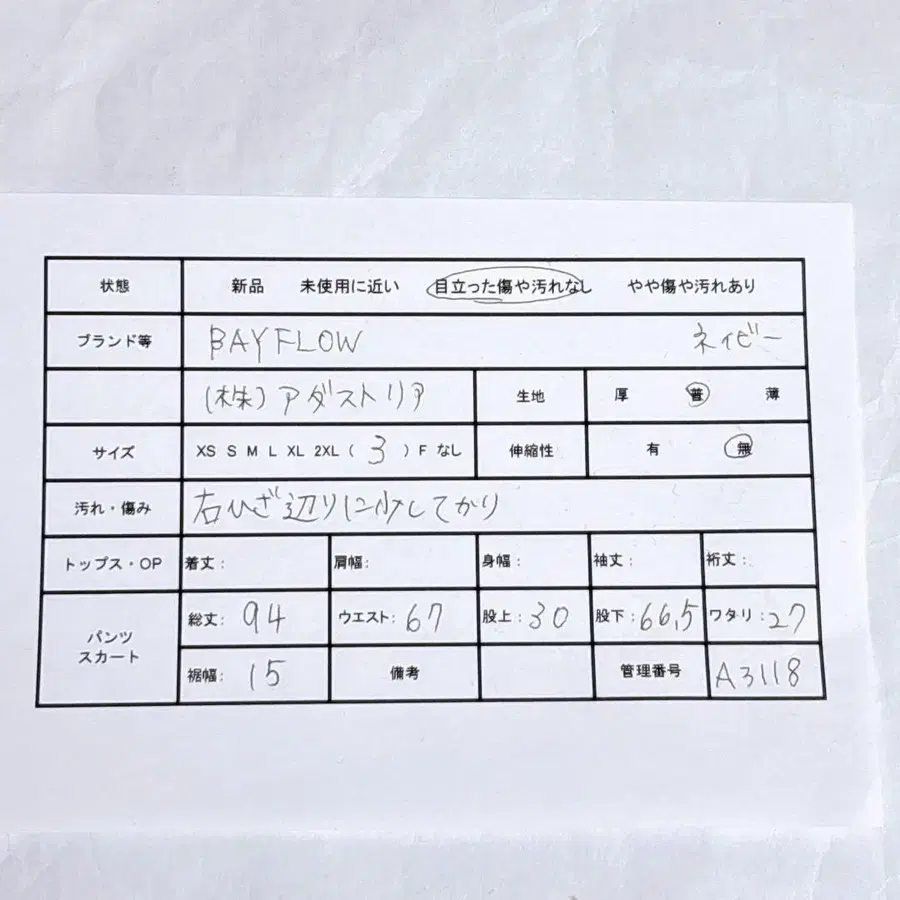 状態 新品 未使用に近い 目立った傷や汚れなし やや傷や汚れあり
ブランド等 BAYFLOW ネイビー
(株)アダストリア 生地 厚 普 薄
サイズ XS S M L XL 2XL ( 3 ) F なし 伸縮性 有 無
汚れ・傷み 右ひざ辺りに少してかり
トップス・OP 着丈: 肩幅: 身幅: 袖丈: 裄丈:
パンツ
スカート
総丈: 94 ウエスト: 67 股上: 30 股下: 66,5 ワタリ: 27
裾幅: 15 備考 管理番号 A3118